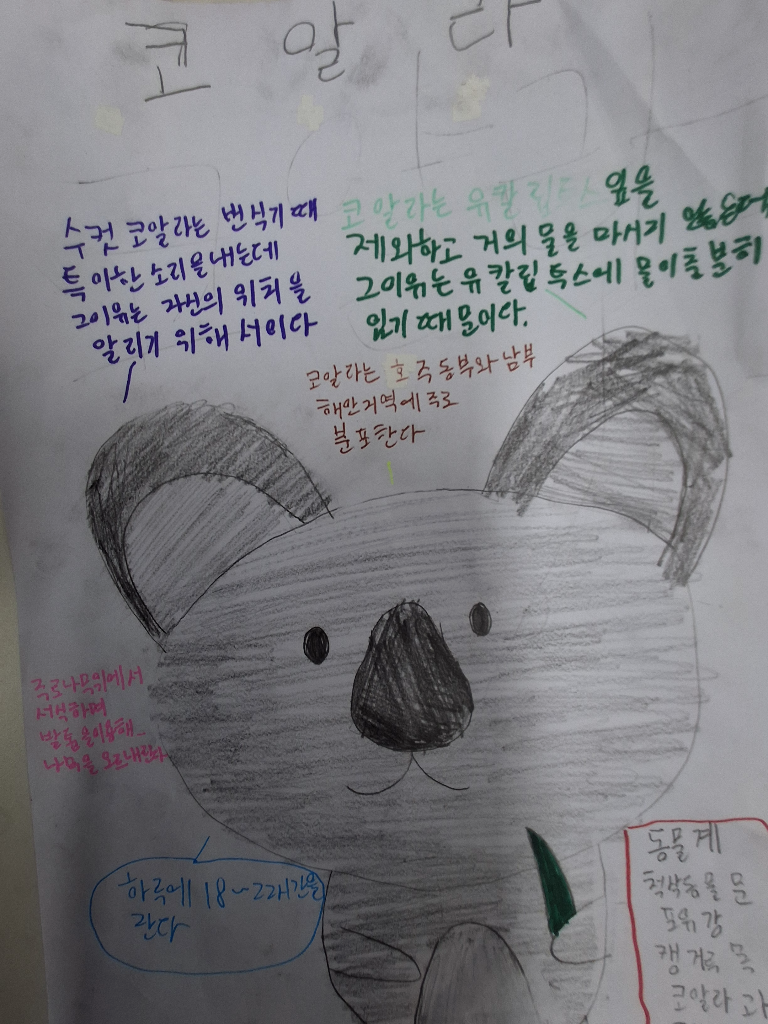 코알라
수컷 코알라는 번식기 때
특이한 소리를 내는데
그이유는 자신의 위치를
알리기 위해서이다
코알라는 유칼립투스 잎을
제외하고 거의 물을 마시기
그이유는 유칼립투스에 물이충분히
있기 때문이다.
코알라는 호주 동부와 남부
해안지역에 주로
분포한다
주로나무위에서
서식하며
발톱을이용해
나무를 오르내린다
하루에 18~22시간을
잔다
동물계
척삭동물문
포유강
캥거루목
코알라과